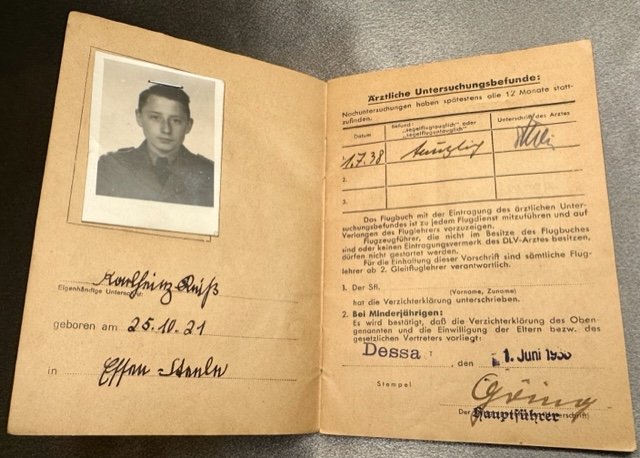 Karlheinz Reiß
Eigenhändige Unterschr.:
geboren am 25.10.21
in Essen-Steele
Ärztliche Untersuchungsbefunde:
Nachuntersuchungen haben spätestens alle 12 Monate statt-
zufinden.
Datum
Befund:
„segelflugtauglich" oder
„segelfluguntauglich"
Unterschrift des Arztes
1. 7. 38
tauglich
2.
3.
Das Flugbuch mit der Eintragung des ärztlichen Unter-
suchungsbefundes ist zu jedem Flugdienst mitzuführen und auf
Verlangen des Fluglehrers vorzuzeigen.
Flugzeugführer, die nicht im Besitze des Flugbuches
sind oder keinen Eintragungsvermerk des DLV-Arztes besitzen,
dürfen nicht gestartet werden.
Für die Einhaltung dieser Vorschrift sind sämtliche Flug-
lehrer ab 2. Gleitfluglehrer verantwortlich.
1. Der Sfl.
(Vorname, Zuname)
hat die Verzichterklärung unterschrieben.
2. Bei Minderjährigen:
Es wird bestätigt, daß die Verzichterklärung des Oben-
genannten und die Einwilligung der Eltern bezw. des
gesetzlichen Vertreters vorliegt:
Dessa , den 1. Juni
Stempel
Der
Hauptführer